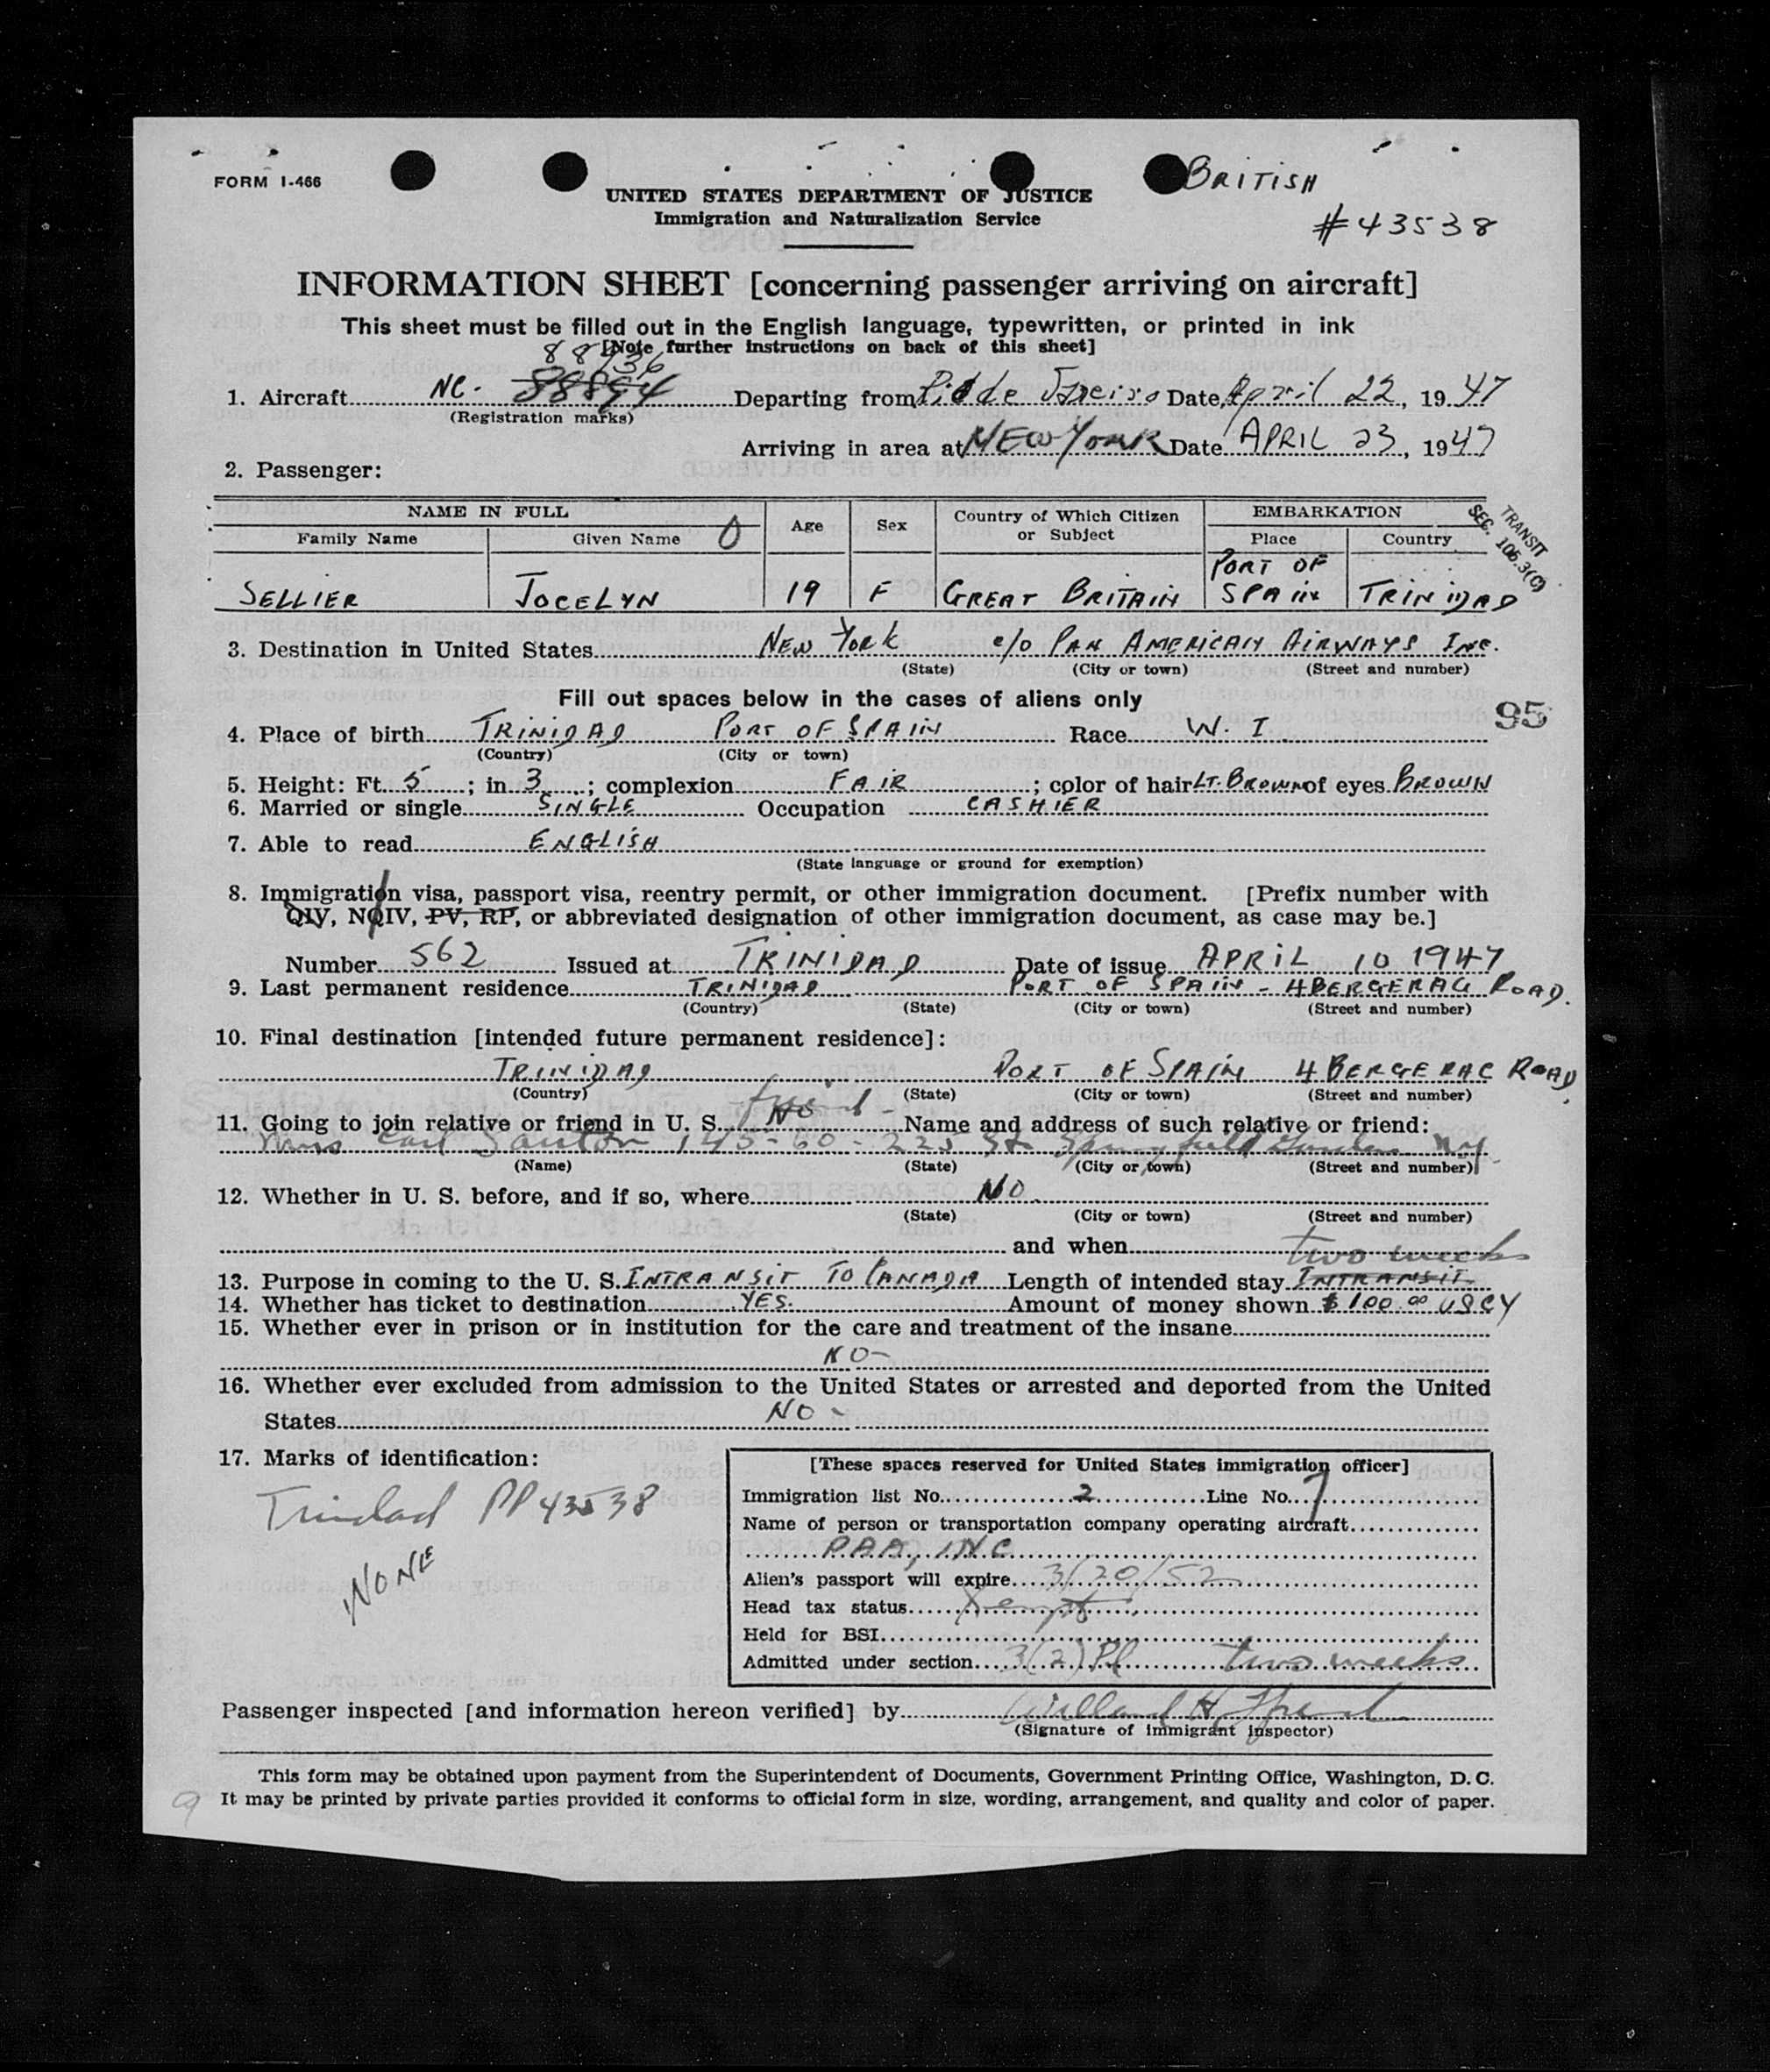 FORM I-466
BRITISH
UNITED STATES DEPARTMENT OF JUSTICE
Immigration and Naturalization Service
#43538
INFORMATION SHEET [concerning passenger arriving on aircraft]
This sheet must be filled out in the English language, typewritten, or printed in ink
[Note further instructions on back of this sheet]
88936
1. Aircraft NC. 88894 Departing from Rio de Janeiro Date April 22, 1947
(Registration marks)
Arriving in area at NEW YORK Date APRIL 23, 1947
2. Passenger:
NAME IN FULL Age Sex Country of Which Citizen or Subject EMBARKATION
Family Name Given Name Place Country
TRANSIT
SEC. 105.3(C)
SELLIER JOCELYN 19 F GREAT BRITAIN PORT OF SPAIN TRINIDAD
3. Destination in United States NEW YORK c/o PAN AMERICAN AIRWAYS INC.
(State) (City or town) (Street and number)
Fill out spaces below in the cases of aliens only
95
4. Place of birth TRINIDAD PORT OF SPAIN Race W. I
(Country) (City or town)
5. Height: Ft. 5; in 3; complexion FAIR; color of hair LT. BROWN of eyes BROWN
6. Married or single SINGLE Occupation CASHIER
7. Able to read ENGLISH
(State language or ground for exemption)
8. Immigration visa, passport visa, reentry permit, or other immigration document. [Prefix number with
QIV, NQIV, PV, RP, or abbreviated designation of other immigration document, as case may be.]
Number 562 Issued at TRINIDAD Date of issue APRIL 10 1947
9. Last permanent residence TRINIDAD PORT OF SPAIN - 4 BERGERAC ROAD.
(Country) (State) (City or town) (Street and number)
10. Final destination [intended future permanent residence]:
TRINIDAD PORT OF SPAIN 4 BERGERAC ROAD,
(Country) (State) (City or town) (Street and number)
friend -
11. Going to join relative or friend in U. S. NO Name and address of such relative or friend:
Mrs Earl 145-60-225 St Springfield Gardens N.Y.
(Name) (State) (City or town) (Street and number)
12. Whether in U. S. before, and if so, where NO
(State) (City or town) (Street and number)
and when
two weeks
13. Purpose in coming to the U. S. INTRANSIT TO CANADA Length of intended stay INTRANSIT
14. Whether has ticket to destination YES. Amount of money shown $100.00 USCY
15. Whether ever in prison or in institution for the care and treatment of the insane
NO-
16. Whether ever excluded from admission to the United States or arrested and deported from the United
States NO-
17. Marks of identification:
Trinidad PP 43538
NONE
[These spaces reserved for United States immigration officer]
Immigration list No. 2 Line No. 7
Name of person or transportation company operating aircraft
P.A.A., INC
Alien's passport will expire 3/20/52
Head tax status Xempt
Held for BSI
Admitted under section 3(2) Pl two weeks
Passenger inspected [and information hereon verified] by Willard H.
(Signature of immigrant inspector)
This form may be obtained upon payment from the Superintendent of Documents, Government Printing Office, Washington, D. C.
It may be printed by private parties provided it conforms to official form in size, wording, arrangement, and quality and color of paper.